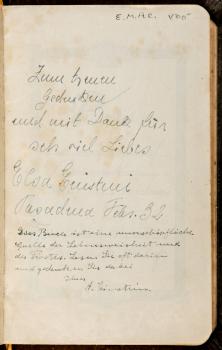 E.M.H.C. 
Zum treuen
Gedenken
und mit Dank für
sehr viel Liebes
Elsa Einstein
Pasadena Febr. 32
Dies Buch ist eine unerschöpfliche
Quelle der Lebensweisheit und
des Trostes. Lesen Sie oft darin
und gedenken Sie dabei
Ihres
A. Einstein.